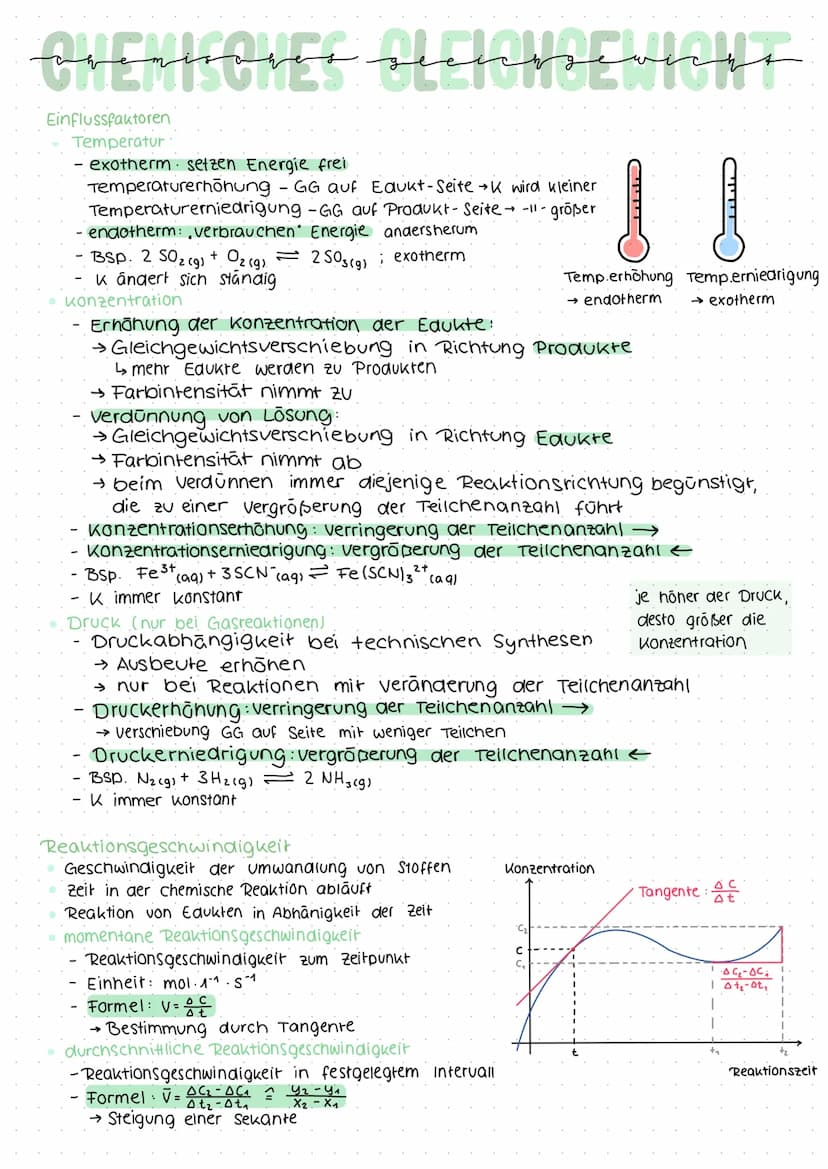 CHEMISCHES GLEICHGEWICHT
chemisches gleichgewicht
Einflussfaktoren
• Temperatur
- exotherm: setzen Energie frei
Temperaturerhöhung – GG auf Edukt-Seite → K wird kleiner
Temperaturerniedrigung – GG auf Produkt-Seite → -11- größer
- endotherm: „verbrauchen" Energie andersherum
- Bsp. 2 SO₂(g) + O₂(g) ⇌ 2 SO₃(g) ; exotherm
- K ändert sich ständig
Temp.erhöhung
→ endotherm
Temp.erniedrigung
→ exotherm
• Konzentration
- Erhöhung der Konzentration der Edukte:
→ Gleichgewichtsverschiebung in Richtung Produkte
↳ mehr Edukte werden zu Produkten
→ Farbintensität nimmt zu
- Verdünnung von Lösung:
→ Gleichgewichtsverschiebung in Richtung Edukte
→ Farbintensität nimmt ab
→ beim Verdünnen immer diejenige Reaktionsrichtung begünstigt,
die zu einer Vergrößerung der Teilchenanzahl führt
- Konzentrationserhöhung: Verringerung der Teilchenanzahl →
- Konzentrationserniedrigung: Vergrößerung der Teilchenanzahl ←
- Bsp. Fe³⁺(aq) + 3SCN⁻(aq) ⇌ Fe(SCN)₃²⁺(aq)
- K immer konstant
je höher der Druck,
desto größer die
Konzentration
• Druck (nur bei Gasreaktionen)
- Druckabhängigkeit bei technischen Synthesen
→ Ausbeute erhöhen
→ nur bei Reaktionen mit Veränderung der Teilchenanzahl
- Druckerhöhung: Verringerung der Teilchenanzahl →
→ Verschiebung GG auf Seite mit weniger Teilchen
- Druckerniedrigung: Vergrößerung der Teilchenanzahl ←
- Bsp. N₂(g) + 3H₂(g) ⇌ 2 NH₃(g)
- K immer konstant
Reaktionsgeschwindigkeit
• Geschwindigkeit der Umwandlung von Stoffen
• Zeit in der chemische Reaktion abläuft
• Reaktion von Edukten in Abhänigkeit der Zeit
• momentane Reaktionsgeschwindigkeit
- Reaktionsgeschwindigkeit zum Zeitpunkt
- Einheit: mol·l⁻¹·s⁻¹
- Formel: V = ΔC/Δt
→ Bestimmung durch Tangente
• durchschnittliche Reaktionsgeschwindigkeit
- Reaktionsgeschwindigkeit in festgelegtem Intervall
- Formel: V̄ = ΔC₂-ΔC₁/Δt₂-Δt₁ ≙ y₂-y₁/x₂-x₁
→ Steigung einer Sekante
Konzentration
Tangente: ΔC/Δt
C₂
C
C₁
ΔC₂-ΔC₁/Δt₂-Δt₁
t
t₁
t₂
Reaktionszeit